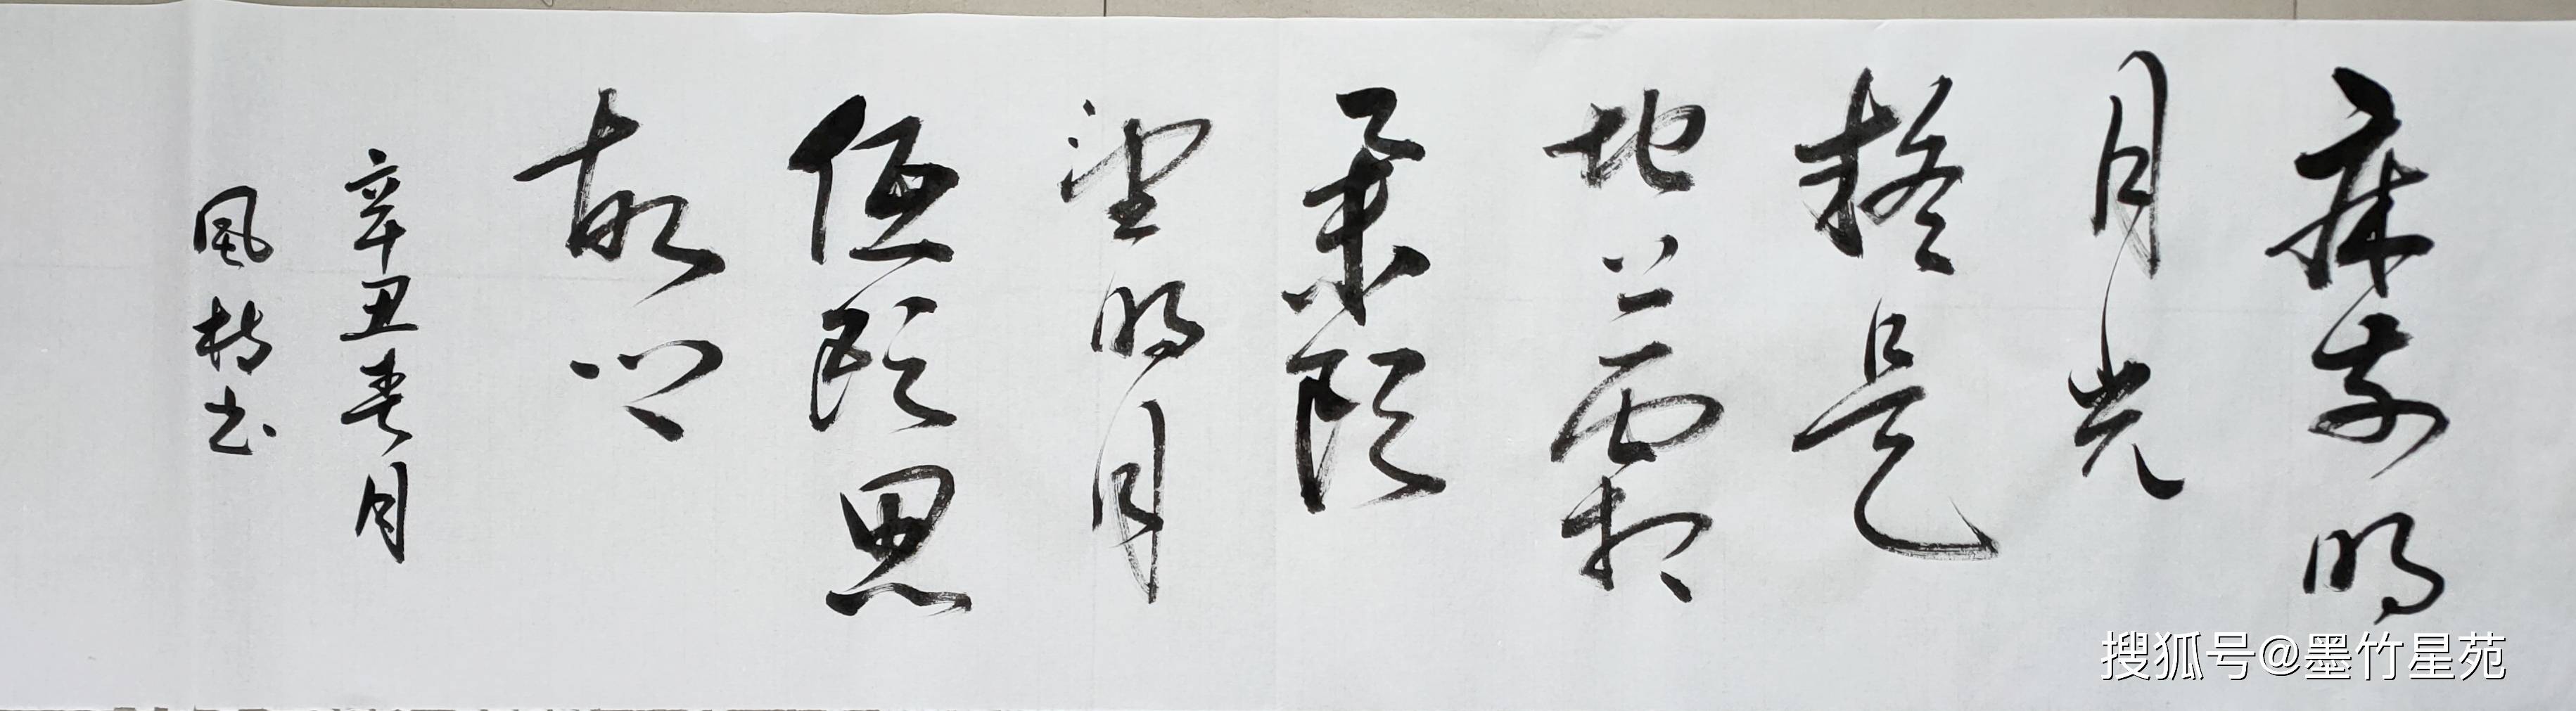 床前明
月光
疑是
地上霜
舉頭
望明月
低頭思
故鄉
辛丑春月
風书
搜狐号@墨竹星苑